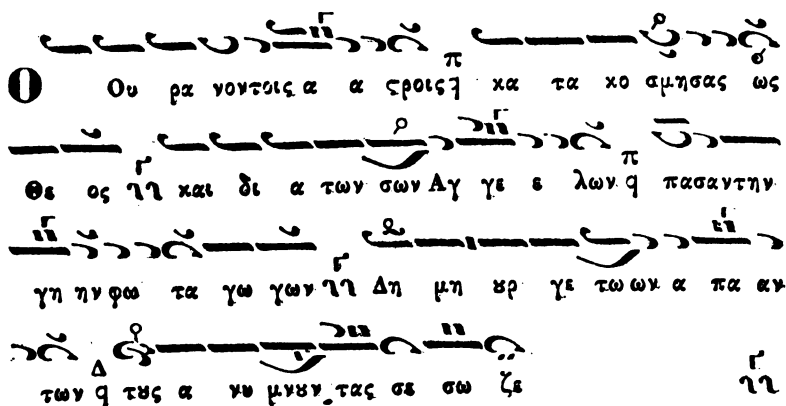 Ο Ου ρα νον τοις α α ςροις π ϟ κα τα κο σμησας ως
Θε ος Γ ϟϟ και δι α των σων Αγ γε ε λων π ϥ πασαν την
γη ην φω τα γω γων Γ ϟϟ Δη μη ȣρ γε τω ων α πα αν
των Δ ϥ τȣς α νυ μνȣν τας σε σω ζε Γ ϟϟ